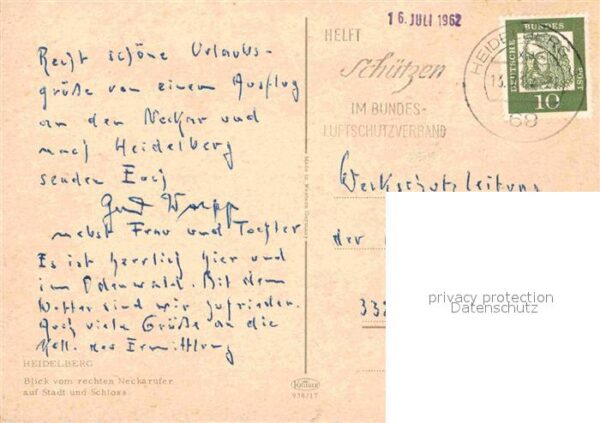 Recht schöne Urlaubs-
grüße von einem Ausflug
an den Neckar und
nach Heidelberg
senden Euch
nebst Frau und Tochter
Es ist herrlich hier und
im Odenwald. Mit dem
Wetter sind wir zufrieden.
Auch viele Grüße an die
Koll. der Ermittlung
HEIDELBERG
Blick vom rechten Neckarufer
auf Stadt und Schloss
16. JULI 1962
HELFT
Schützen
IM BUNDES-
LUFTSCHUTZVERBAND
HEIDELBERG
13.
68
DEUTSCHE BUNDES POST
10
Werkschutzleitung
der
332
privacy protection
Datenschutz
Krüger
938/17